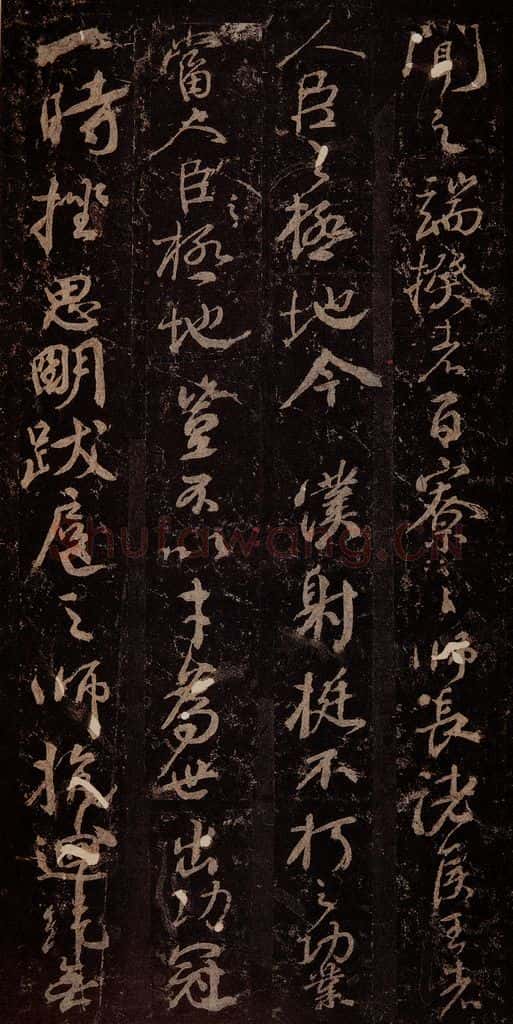 聞之端揆者百寮之師長諸侯王者
人臣之極地今僕射挺不朽之功業
當人臣極之地豈不以才為世出功冠
一時挫思明跋扈之師抗迴紇無
shufawang.cn